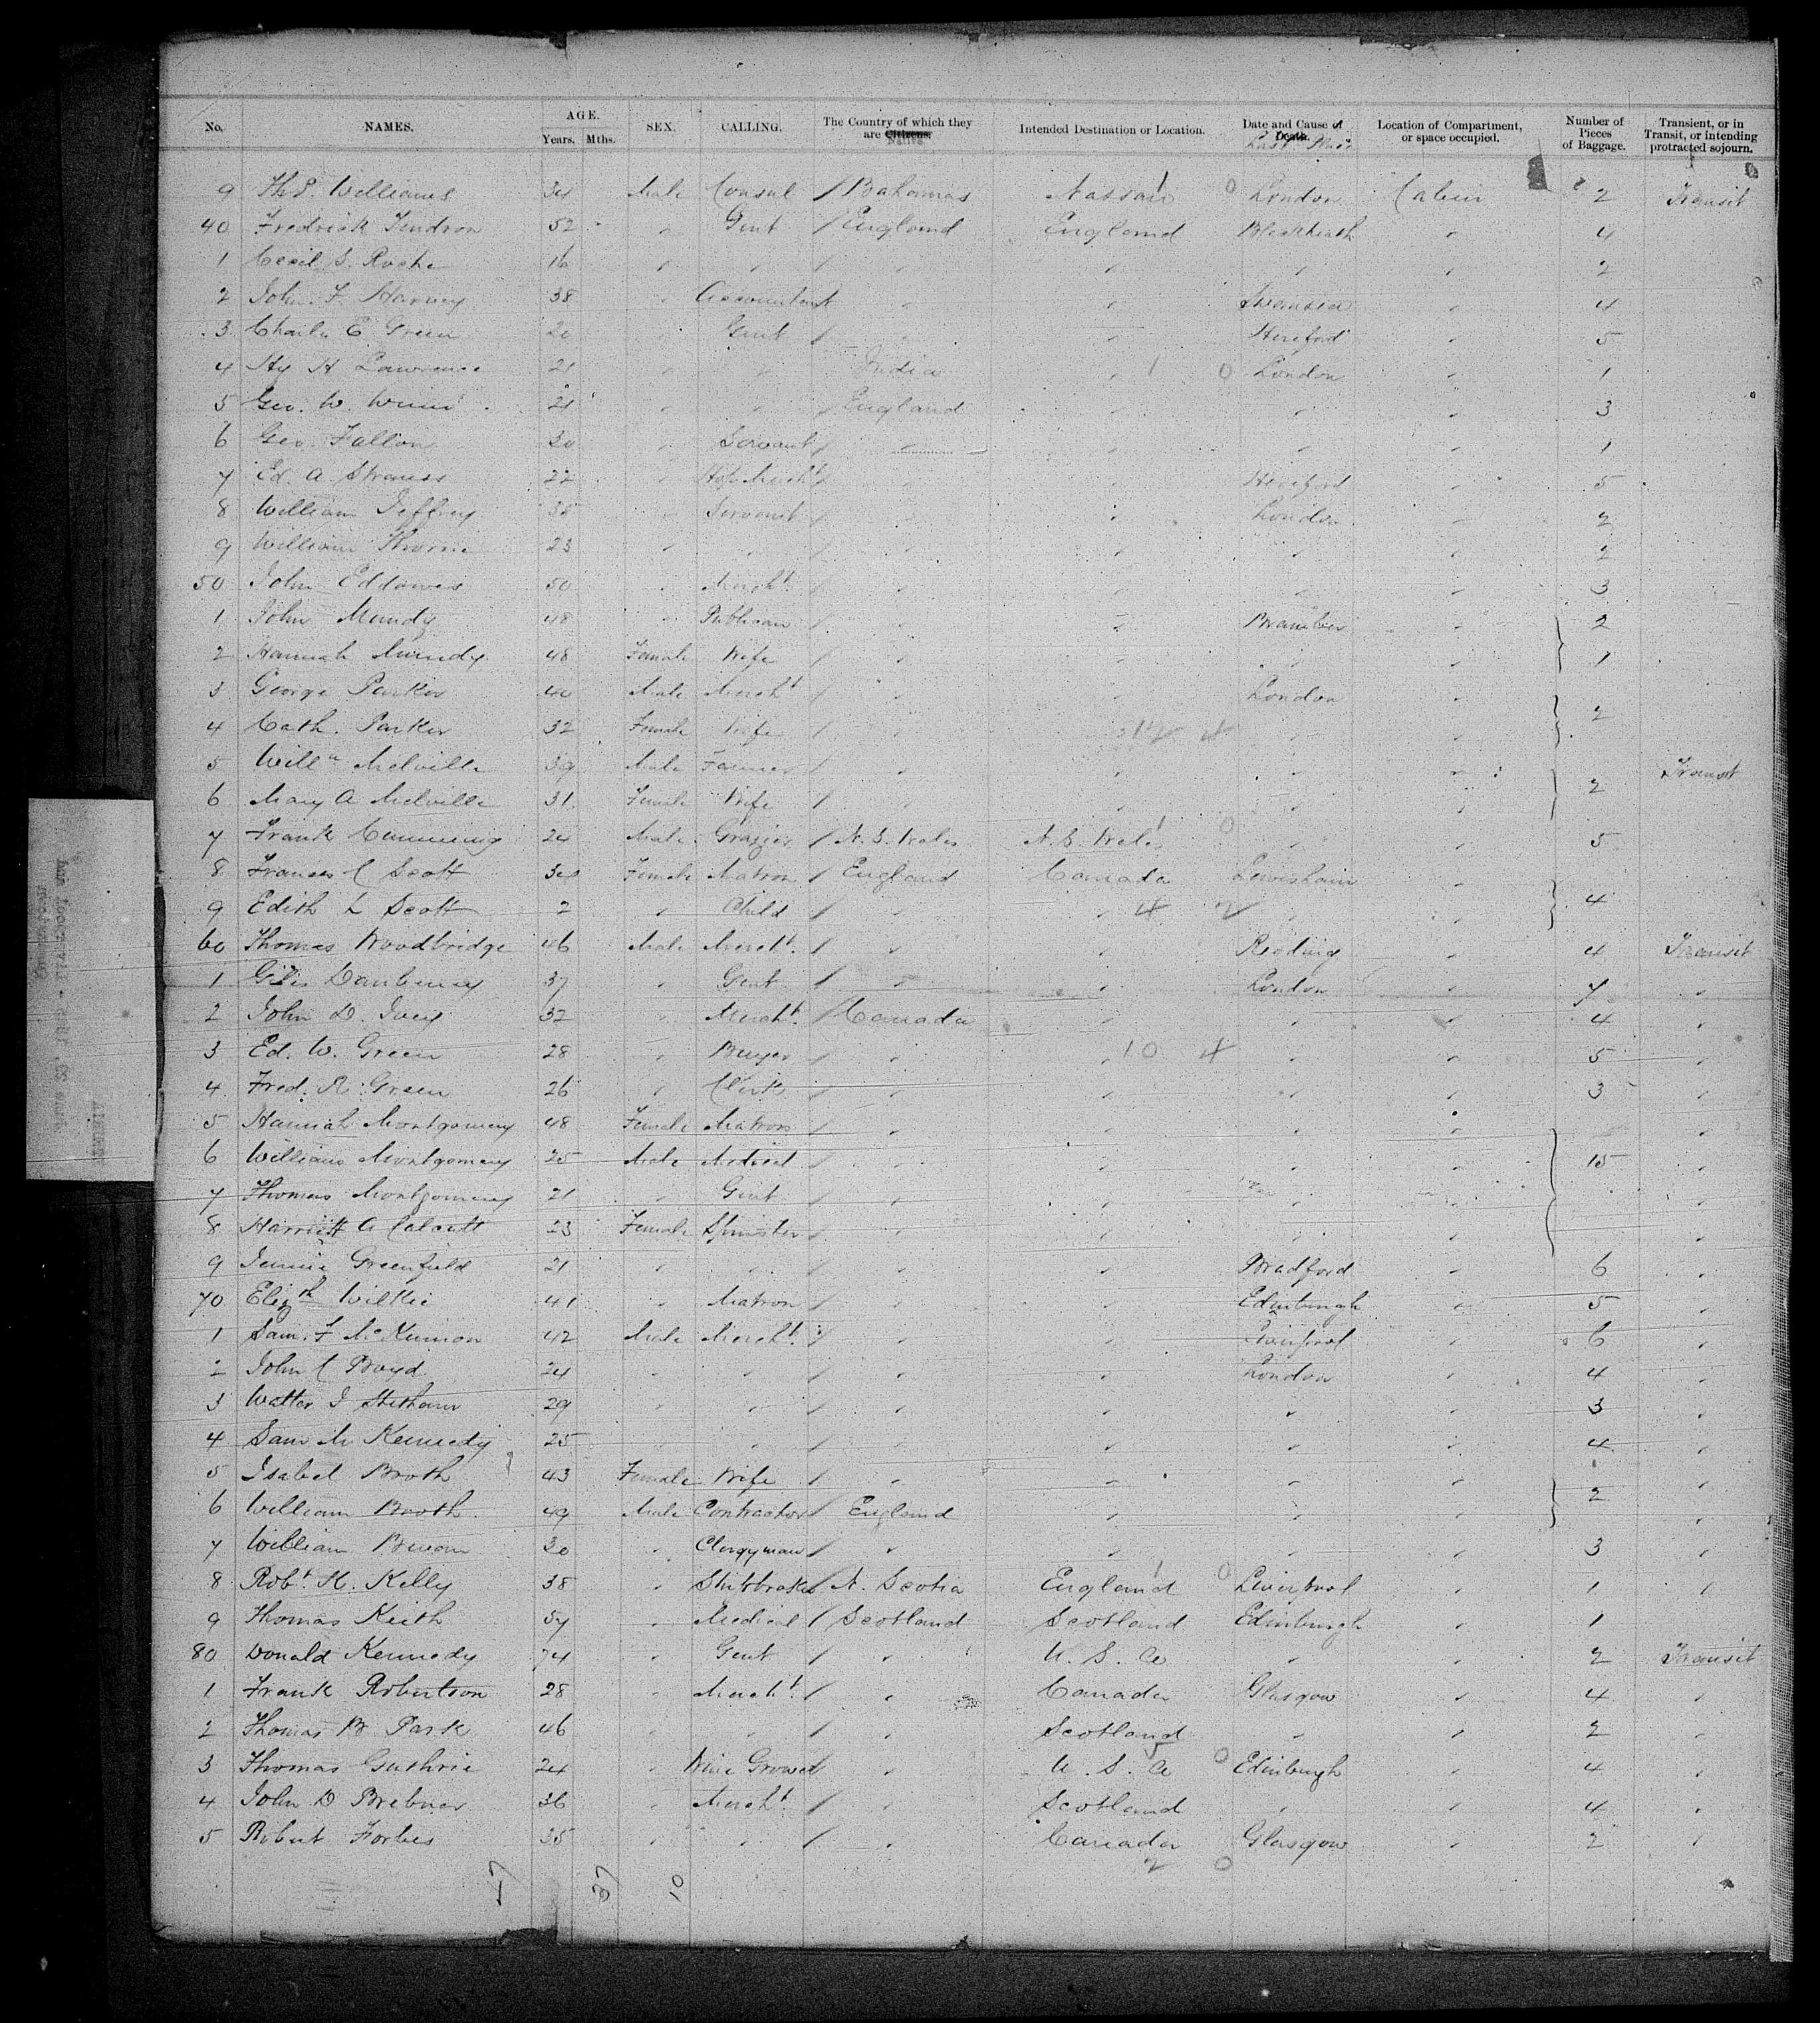 No. NAMES. AGE. Years. Mths. SEX. CALLING. The Country of which they are Citizens. Native Intended Destination or Location. Date and Cause of Death. Last Place Location of Compartment, or space occupied. Number of Pieces of Baggage. Transient, or in Transit, or intending protracted sojourn.
9 Williams 34 Male Consul / Bahamas Nassau 1 0 London Cabin 2 Transit
40 Fredrick Tendron 52 " Gent / England England Blackheath " 4
1 Cecil S. Roche 16 " " / " " " " 2
2 John. F. Harvey 38 " Accountant " " Swansea " 4
3 Charles E Green 20 " Gent / " " Hereford " 5
4 Hy H Lawrence 21 " " India " 1 0 London " 1
5 Geo. W. 21 " " / England " " " 3
6 Geo. Fallon 30 " Servant / " " " " 1
7 Ed. A Strauss 22 " Hop Mercht / " " Hereford " 5
8 William Jeffrey 35 " Servant / " " London " 2
9 William Thorne 23 " " / " " " " 2
50 John Eddowes 50 " Mercht / " " " " 3
1 John Mundy 48 " Publican / " " " 2
2 Hannah Mundy 48 Female Wife / " " " " 1
3 George Parker 40 Male Mercht / " " London " 2
4 Cath. Parker 32 Female Wife / " " 12 4 " "
5 Willm Melville 39 Male Farmer / " " " " 2 Transit
6 Mary A Melville 31 Female Wife / " " " "
7 Frank Cumming 24 Male Grazier / N. S. Wales N. S. Wales 1 0 " " 5
8 Frances C Scott 30 Female Matron / England Canada Lewisham " 4
9 Edith L Scott 2 " Child / " " 4 2 " "
60 Thomas Woodbridge 46 Male Mercht. / " " Reading " 4 Transit
1 Giles Daubeney 37 " Gent / " " London " 7 "
2 John D. Ivey 32 " Mercht. / Canada " " " 4 "
3 Ed. W. Green 28 " Buyer / " " 10 4 " " 5 "
4 Fred. R. Green 26 " Clerk / " " " " 3 "
5 Hannah Montgomery 48 Female Matron / " " " " "
6 William Montgomery 25 Male Medical / " " " " 15 "
7 Thomas Montgomery 21 " Gent / " " " " "
8 Harriett A Calcutt 23 Female Spinster / " " " " "
9 Jennie Greenfield 21 " " / " " Bradford " 6 "
70 Elizth Wilkie 41 " Matron / " " Edinburgh " 5 "
1 Sam. F McKinnon 42 Male Mercht. / " " Liverpool " 6 "
2 John C Boyd 24 " " / " " London " 4 "
3 Walter J 29 " " / " " " " 3 "
4 Sam M Kennedy 25 " " / " " " " 4 "
5 Isabel Booth 43 Female Wife / " " " " 2 "
6 William Booth 49 Male Contractor / England " " " "
7 William Bevan 30 " Clergyman / " " " " 3 "
8 Robt. H. Kelly 38 " Shipbroker / N. Scotia England 1 0 Liverpool " 1 "
9 Thomas Keith 57 " Medical / Scotland Scotland Edinburgh " 1
80 Donald Kennedy 74 " Gent / " U. S. A " " 2 Transit
1 Frank Robertson 28 " Mercht. / " Canada Glasgow " 4 "
2 Thomas B Park 46 " " / " Scotland " " 2 "
3 Thomas Guthrie 24 " Wine Grower / " U. S. A 5 0 Edinburgh " 4 "
4 John D Brebner 36 " Mercht. / " Scotland " " 4 "
5 Robert Forbes 35 " " / " Canada Glasgow " 2 "
2 0
47 37 10